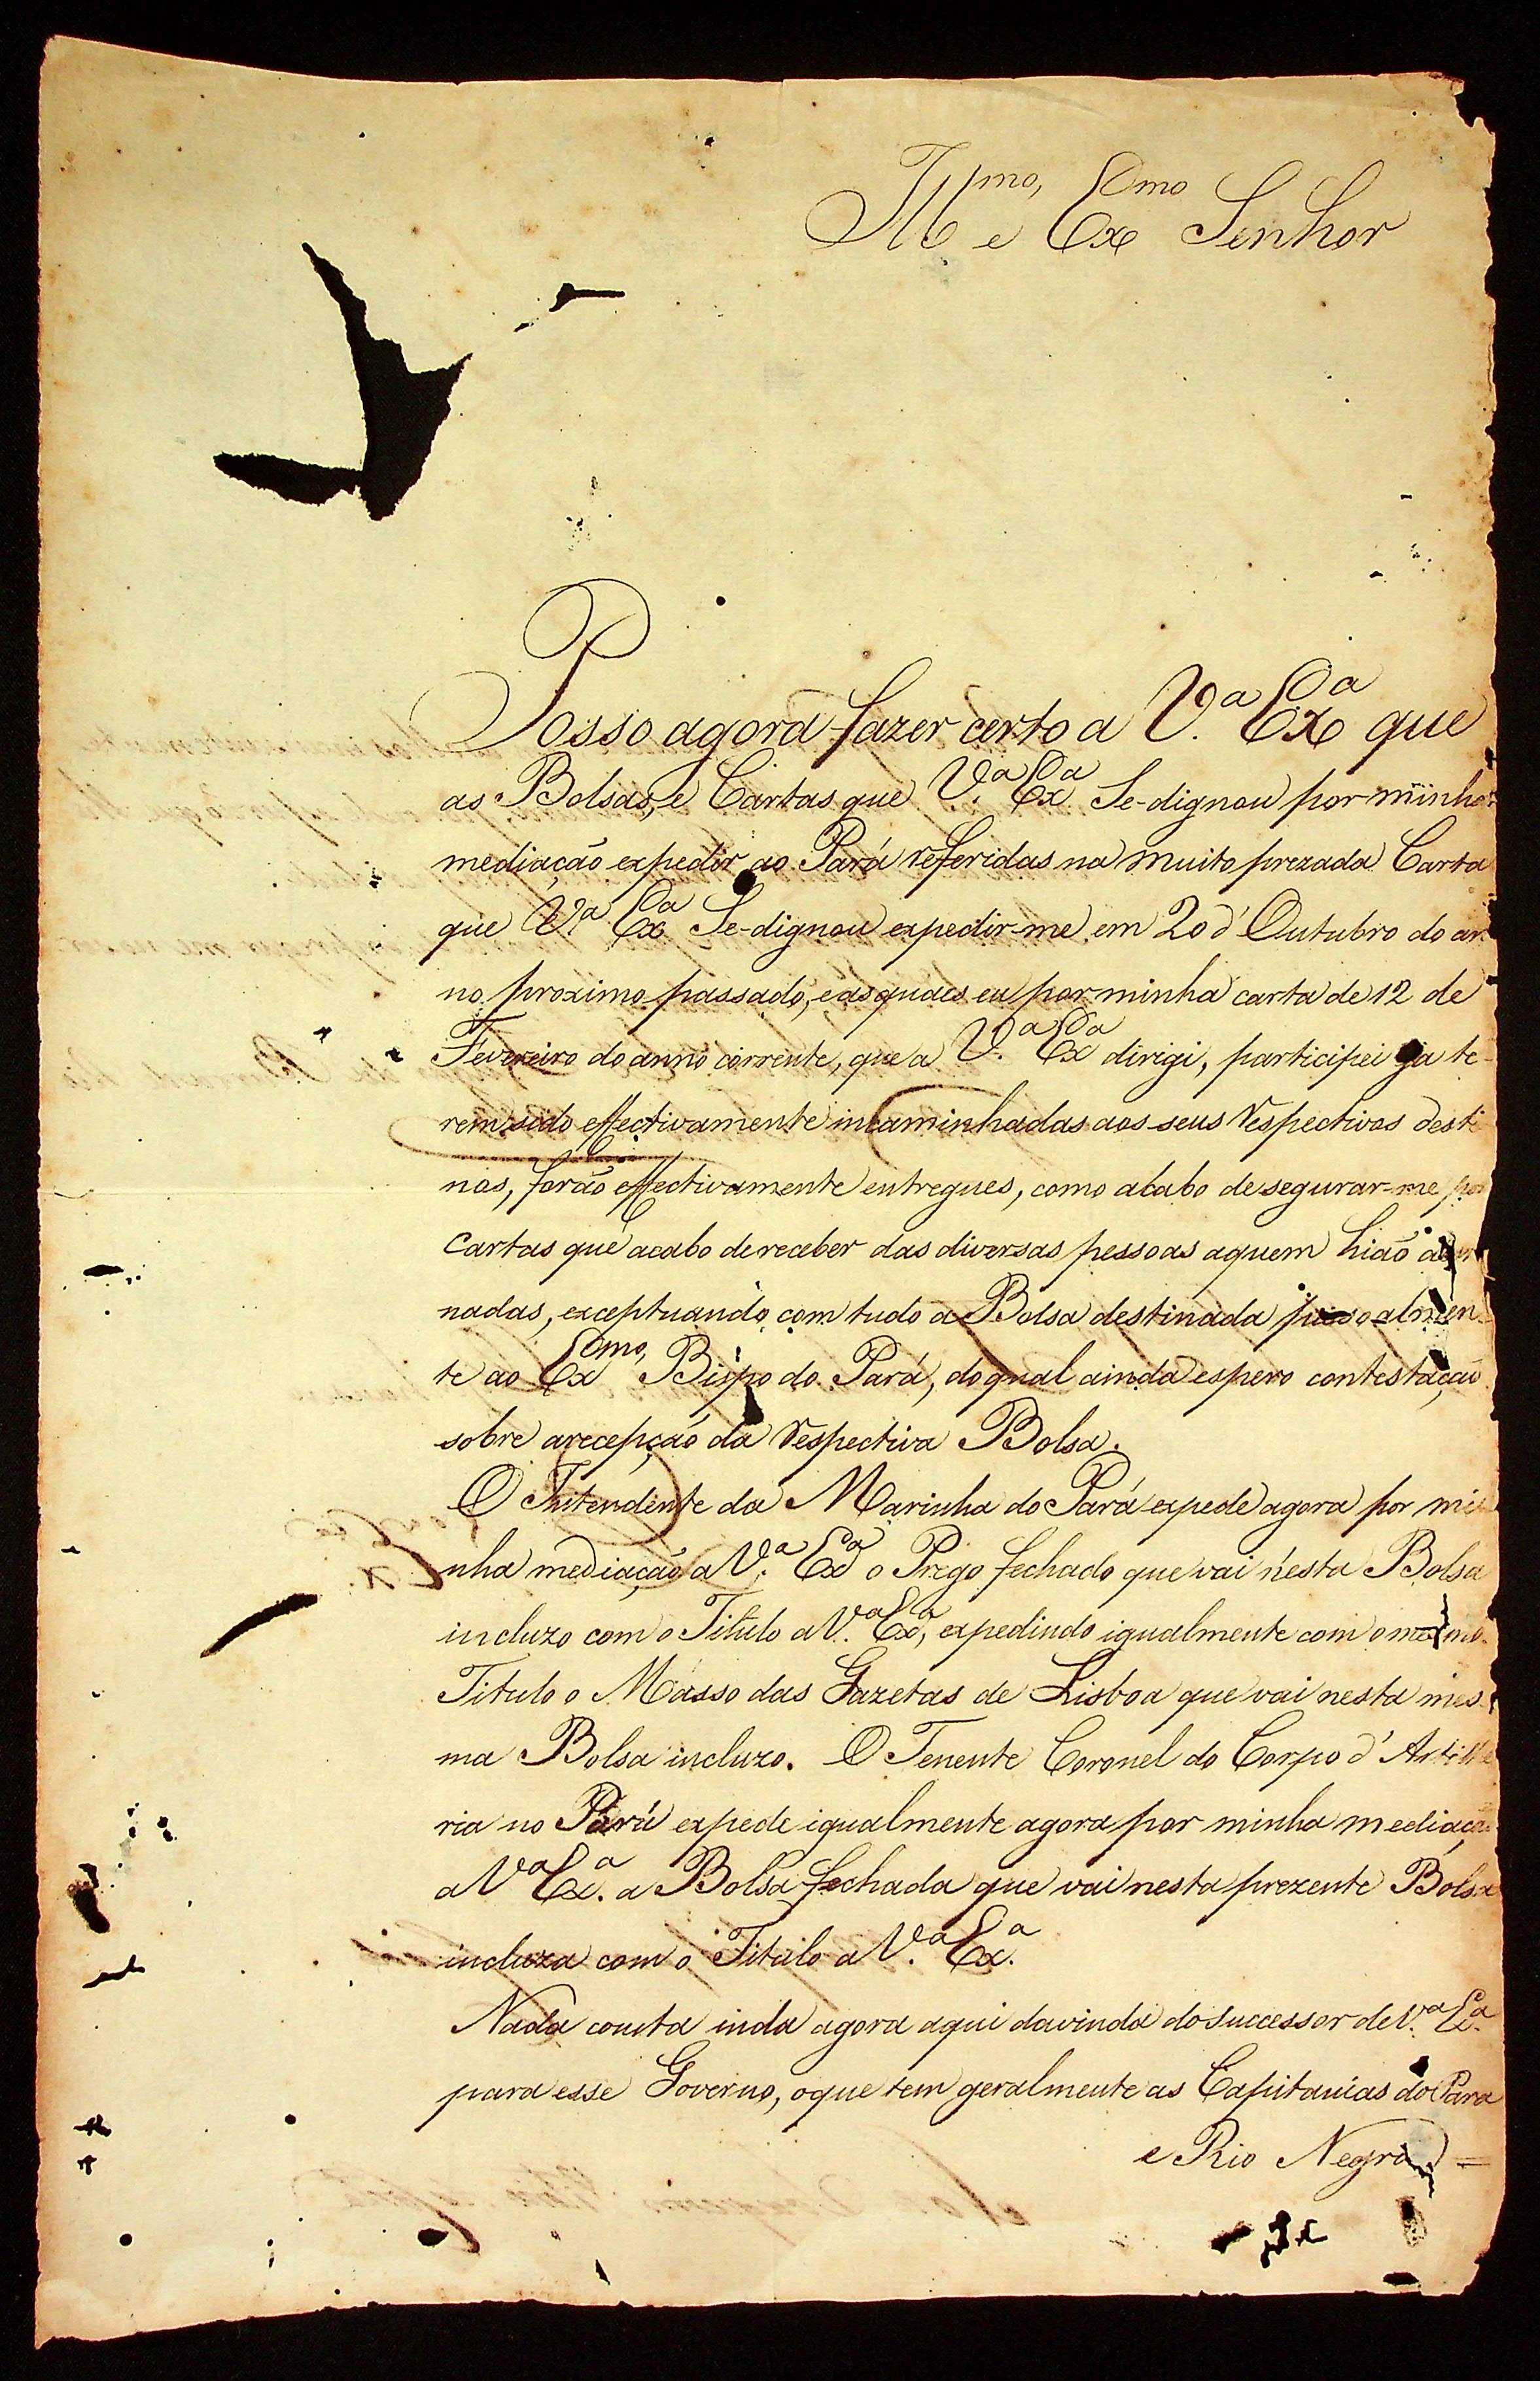 Ill.mo, e Ex.mo Senhor
Posso agora fazer certo a V.a Ex.a que
as Bolsas, e Cartas que V.a Ex.a Se-dignou por minha
mediação expedir ao Pará referidas na muito prezada Carta
que V.a Ex.a Se-dignou expedir-me em 20 d'Outubro do an
no proximo passado, e as quaes eu por minha carta de 12 de
Fevereiro do anno corrente, que a V.a Ex.a dirigi, participei ja te-
rem sido effectivamente incaminhadas aos seus respectivos desti
nos, forão effectivamente entregues, como acabo de segurar-me por
cartas que acabo de receber das diversas pessoas aquem hião
nadas, exceptuando com tudo a Bolsa destinada pessoalmen-
te ao Ex.mo, Bispo do Pará, do qual ainda espero contestação
sobre a recepção da respectiva Bolsa.
O Intendente da Marinha do Pará expede agora por mi
nha mediação a V.a Ex.a o Prego fechado que vai nésta Bolsa
incluzo com o Titulo a V.a Ex.a, expedindo igualmente com o mesmo
Titulo o Masso das Gazetas de Lisboa que vai nesta mes
ma Bolsa incluzo. O Tenente Coronel do Corpo d'Artilhe
ria no Pará expede igualmente agora por minha mediação
a V.a Ex.a a Bolsa fechada que vai nesta prezente Bolsa
incluza com o Titulo a V.a Ex.a
Nada consta inda agora aqui da vinda do successor de V.a Ex.a
para esse Governo, o que tem geralmente as Capitanias do Pará
e Rio Negro =